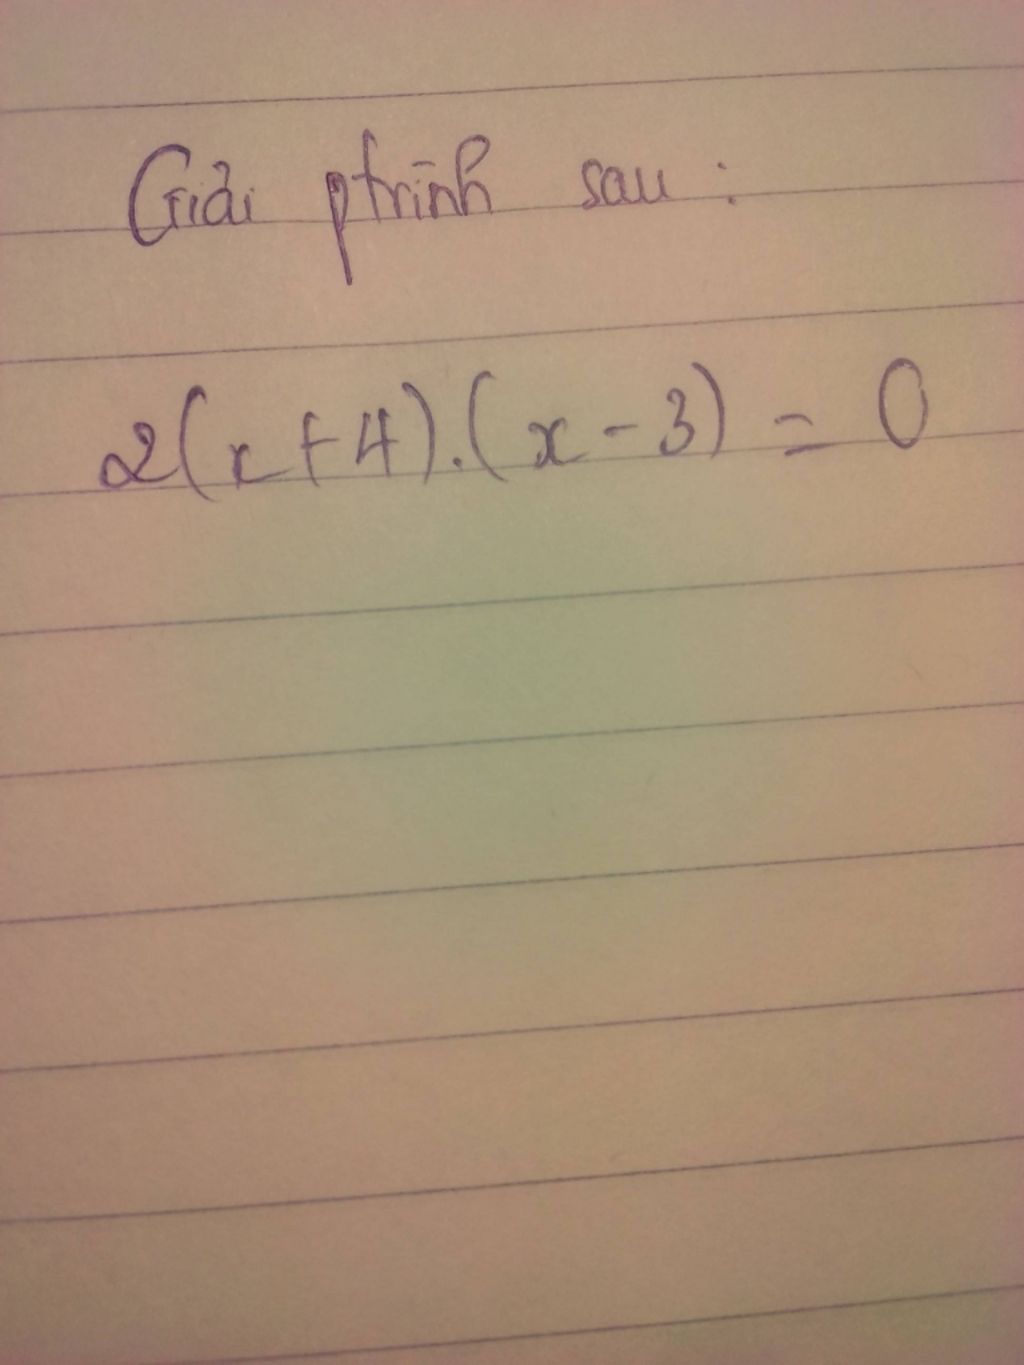 Giải ptrình sau :
2(x+4).(x-3) = 0